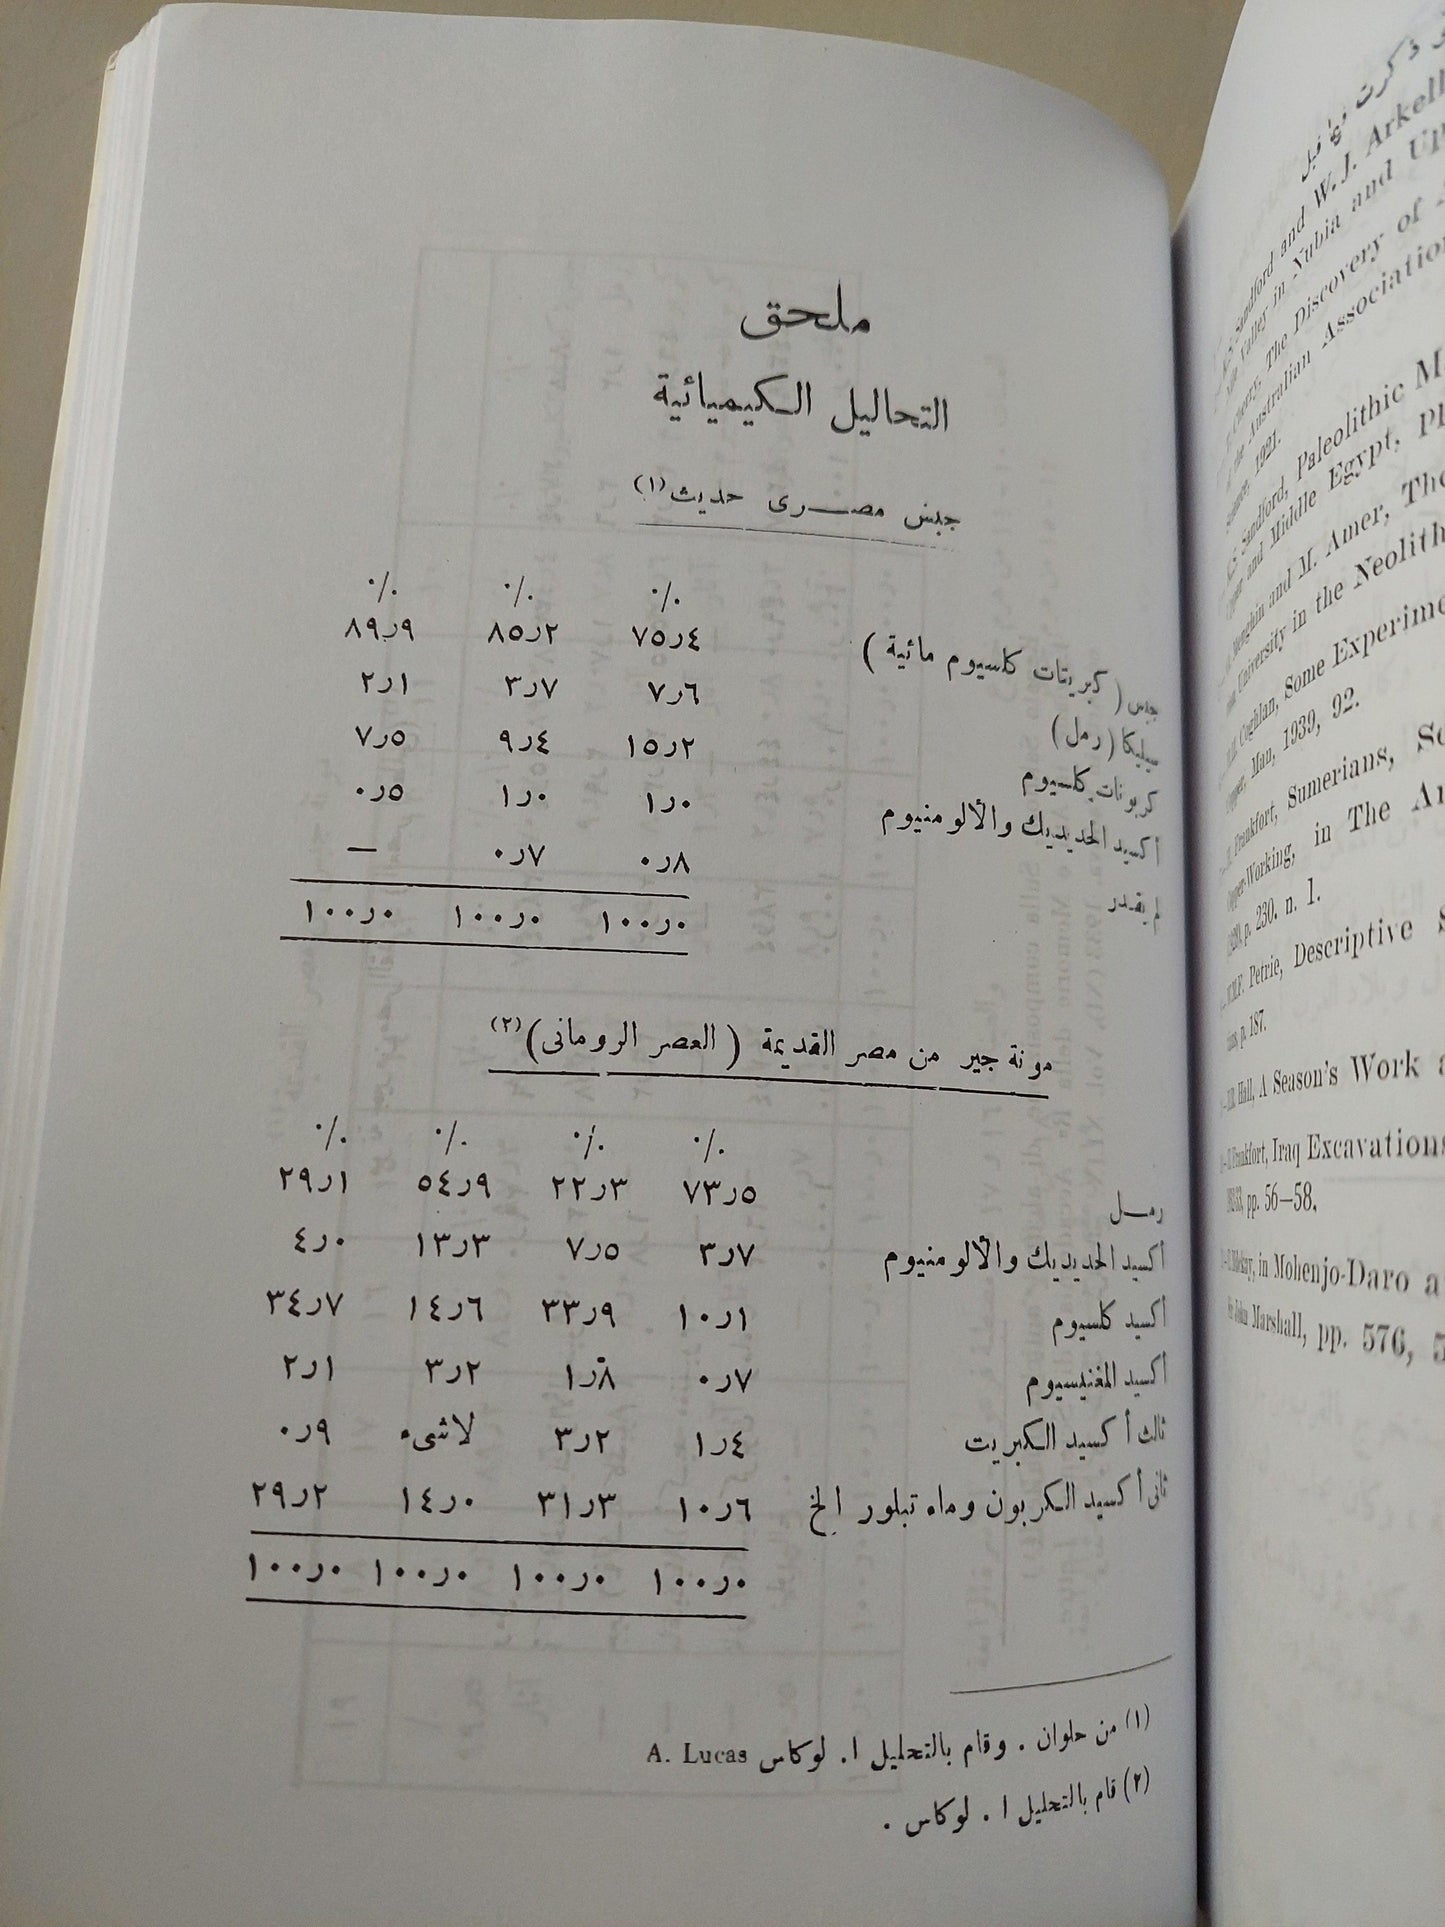 ملحق
التحاليل الكيميائية
جبس مصرى حديث (١)
٪ ٪ ٪
جبس ( كبريتات كلسيوم مائية ) ٤ر٧٥ ٢ر٨٥ ٩ر٨٩
سيليكا ( رمل ) ٦ر٧ ٧ر٣ ١ر٢
كربونات كلسيوم ٢ر١٥ ٤ر٩ ٥ر٧
أكسيد الحديديك والألومنيوم ٠ر١ ٠ر١ ٥ر٠
لم يقدر ٨ر٠ ٧ر٠ —
٠ر١٠٠ ٠ر١٠٠ ٠ر١٠٠
مونة جير من مصر القديمة ( العصر الرومانى ) (٢)
٪ ٪ ٪ ٪
رمل ٥ر٧٣ ٣ر٢٢ ٩ر٥٤ ١ر٢٩
أكسيد الحديديك والألومنيوم ٧ر٣ ٥ر٧ ٣ر١٣ ٠ر٤
أكسيد كلسيوم ١ر١٠ ٩ر٣٣ ٦ر١٤ ٧ر٣٤
أكسيد المغنيسيوم ٧ر٠ ٨ر١ ٢ر٣ ١ر٢
ثالث أكسيد الكبريت ٤ر١ ٢ر٣ لاشىء ٩ر٠
ثانى أكسيد الكربون وماء تبلور الخ ٦ر١٠ ٣ر٣١ ٠ر١٤ ٢ر٢٩
٠ر١٠٠ ٠ر١٠٠ ٠ر١٠٠ ٠ر١٠٠
(١) من حلوان . وقام بالتحليل ا. لوكاس A. Lucas
(٢) قام بالتحليل ا . لوكاس .
Sandford and W. J. Arkell
Valley in Nubia and
Cherry, The Discovery of
the Australian Association
1921.
Sandford, Paleolithic
and Middle Egypt,
and M. Amer, The
University in the
Coghlan, Some
Man, 1939, 92.
Frankfort, Sumerians,
-Working, in The
p. 230. n. 1.
Petrie, Descriptive
p. 187.
Hall, A Season's Work
Frankfort, Iraq Excavations
pp. 56–58.
in Mohenjo-Daro
John Marshall, pp. 576,